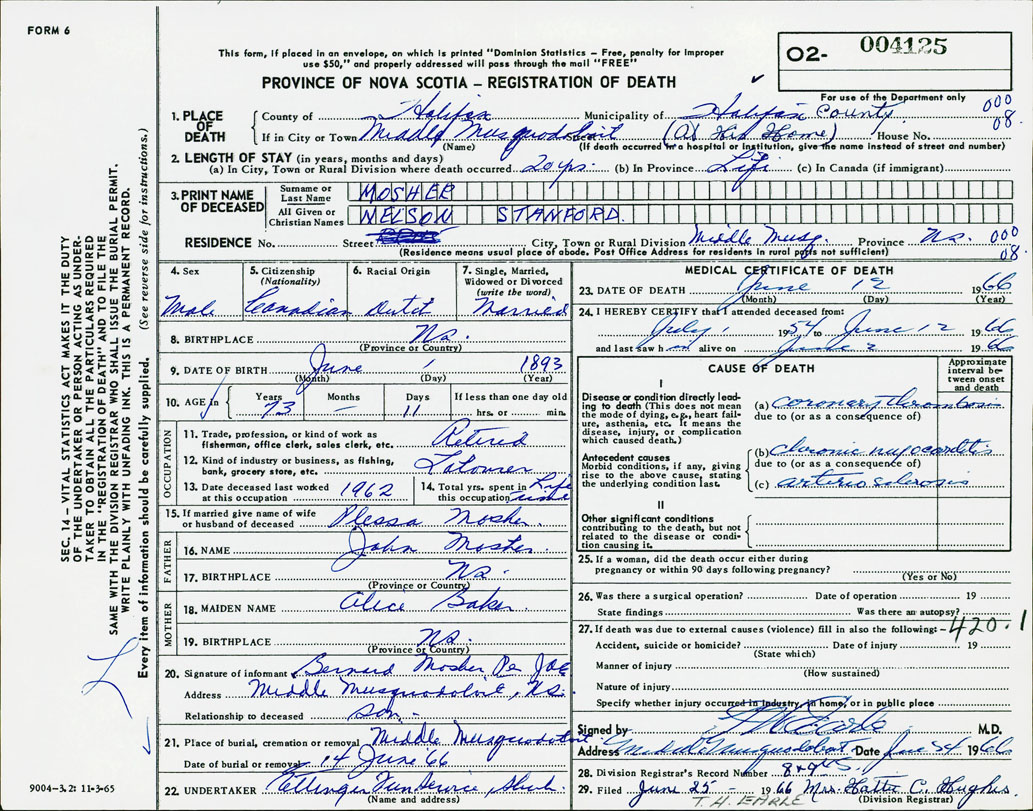 FORM 6
This form, if placed in an envelope, on which is printed "Dominion Statistics – Free, penalty for improper
use $50," and properly addressed will pass through the mail "FREE"
O2- 004125
PROVINCE OF NOVA SCOTIA – REGISTRATION OF DEATH
For use of the Department only
000
08
1. PLACE OF DEATH
County of Halifax Municipality of Halifax County
If in City or Town Middle Musquodoboit (At His Home) House No.
(Name) (If death occurred in a hospital or institution, give the name instead of street and number)
2. LENGTH OF STAY (in years, months and days)
(a) In City, Town or Rural Division where death occurred 20 yrs. (b) In Province Life (c) In Canada (if immigrant)
3. PRINT NAME OF DECEASED
Surname or Last Name MOSHER
All Given or Christian Names NELSON STANFORD
RESIDENCE No. Street City, Town or Rural Division Middle Musq. Province NS. 000
(Residence means usual place of abode. Post Office Address for residents in rural parts not sufficient) 08
4. Sex Male
5. Citizenship (Nationality) Canadian
6. Racial Origin Dutch
7. Single, Married, Widowed or Divorced (write the word) Married
8. BIRTHPLACE NS.
(Province or Country)
9. DATE OF BIRTH June 1 1893
(Month) (Day) (Year)
10. AGE in Years Months Days If less than one day old
73 — 11 hrs. or min.
OCCUPATION
11. Trade, profession, or kind of work as fisherman, office clerk, sales clerk, etc. Retired
12. Kind of industry or business, as fishing, bank, grocery store, etc.
13. Date deceased last worked at this occupation 1962
14. Total yrs. spent in this occupation Life time
15. If married give name of wife or husband of deceased Mosher
FATHER
16. NAME John Mosher
17. BIRTHPLACE NS.
(Province or Country)
MOTHER
18. MAIDEN NAME Alice Baker
19. BIRTHPLACE NS.
(Province or Country)
20. Signature of informant Bernard Mosher Per
Address Middle Musquodoboit, NS.
Relationship to deceased Son
21. Place of burial, cremation or removal Middle Musquodoboit
Date of burial or removal 14 June '66
22. UNDERTAKER Ettinger Fun Service
(Name and address)
MEDICAL CERTIFICATE OF DEATH
23. DATE OF DEATH June 12 1966
(Month) (Day) (Year)
24. I HEREBY CERTIFY that I attended deceased from:
July 1 1954 to June 12 1966
and last saw h alive on June 2 1966
CAUSE OF DEATH
Approximate interval between onset and death
I
Disease or condition directly leading to death (This does not mean the mode of dying, e.g., heart failure, asthenia, etc. It means the disease, injury, or complication which caused death.)
(a) coronary thrombosis
due to (or as a consequence of)
Antecedent causes
Morbid conditions, if any, giving rise to the above cause, stating the underlying condition last.
(b) chronic myocarditis
due to (or as a consequence of)
(c) arteriosclerosis
II
Other significant conditions
contributing to the death, but not related to the disease or condition causing it.
25. If a woman, did the death occur either during
pregnancy or within 90 days following pregnancy?
(Yes or No)
26. Was there a surgical operation? Date of operation 19
State findings Was there an autopsy?
27. If death was due to external causes (violence) fill in also the following:- 420.1
Accident, suicide or homicide? Date of injury 19
(State which)
Manner of injury
(How sustained)
Nature of injury
Specify whether injury occurred in industry, in home, or in public place
Signed by M.D.
Address Middle Musquodoboit Date June 24 1966
28. Division Registrar's Record Number
29. Filed June 25 – 1966 Mrs. Hattie C. Hughes
T. H. EARLE (Division Registrar)
SEC. 14 – VITAL STATISTICS ACT MAKES IT THE DUTY
OF THE UNDERTAKER OR PERSON ACTING AS UNDER-
TAKER TO OBTAIN ALL THE PARTICULARS REQUIRED
IN THE "REGISTRATION OF DEATH" AND TO FILE THE
SAME WITH THE DIVISION REGISTRAR WHO SHALL ISSUE THE BURIAL PERMIT.
WRITE PLAINLY WITH UNFADING INK. THIS IS A PERMANENT RECORD.
Every item of information should be carefully supplied. (See reverse side for instructions.)
9004-3.2: 11-3-65